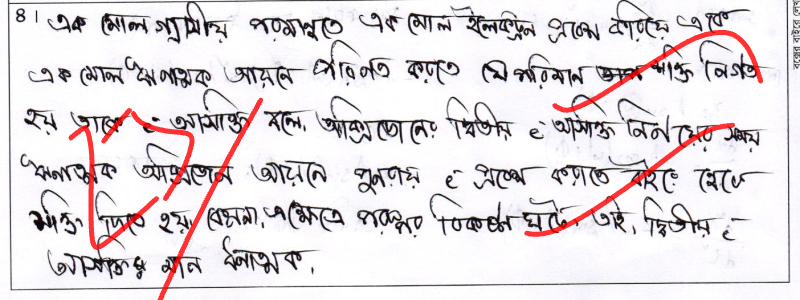 ৪। এক মোল গ্যাসীয় পরমাণুতে এক মোল ইলেকট্রন প্রবেশ করিয়ে একে
এক মোল ঋণাত্মক আয়নে পরিণত করতে যে পরিমান শক্তি নির্গত
হয় তাকে e⁻ আসক্তি বলে, অক্সিজেনের দ্বিতীয় e⁻ আসক্তি নির্ণয়ের সময়
ঋণাত্মক অক্সিজেন আয়নে পুনরায় e⁻ প্রবেশ করাতে বাইরে থেকে
শক্তি দিতে হয়, কেননা, এক্ষেত্রে পরস্পর বিকর্ষণ ঘটে, তাই, দ্বিতীয় e⁻
আসক্তির মান ধনাত্মক,